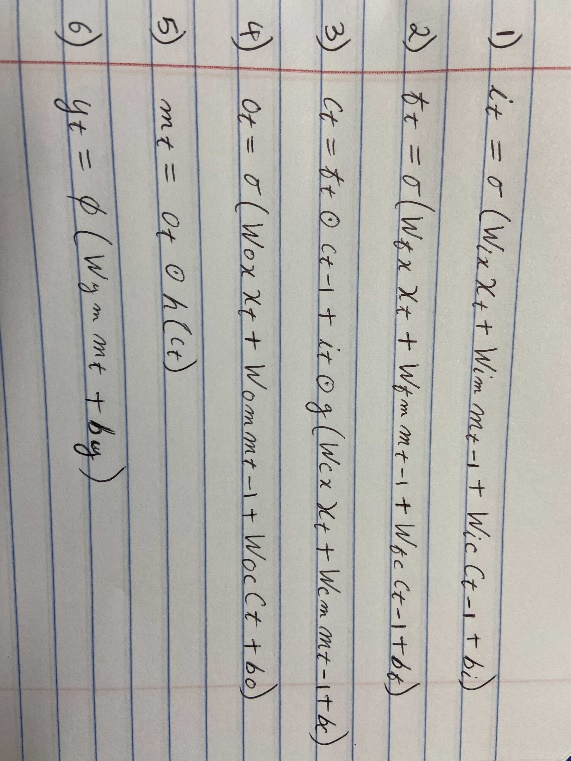 1) it = σ (Wix xt + Wim mt-1 + Wic ct-1 + bi)
2) ft = σ (Wfx xt + Wfm mt-1 + Wfc ct-1 + bf)
3) ct = ft ⊙ ct-1 + it ⊙ g (Wcx xt + Wcm mt-1 + bc)
4) ot = σ (Wox xt + Wom mt-1 + Woc ct + bo)
5) mt = ot ⊙ h(ct)
6) yt = φ (Wym mt + by)